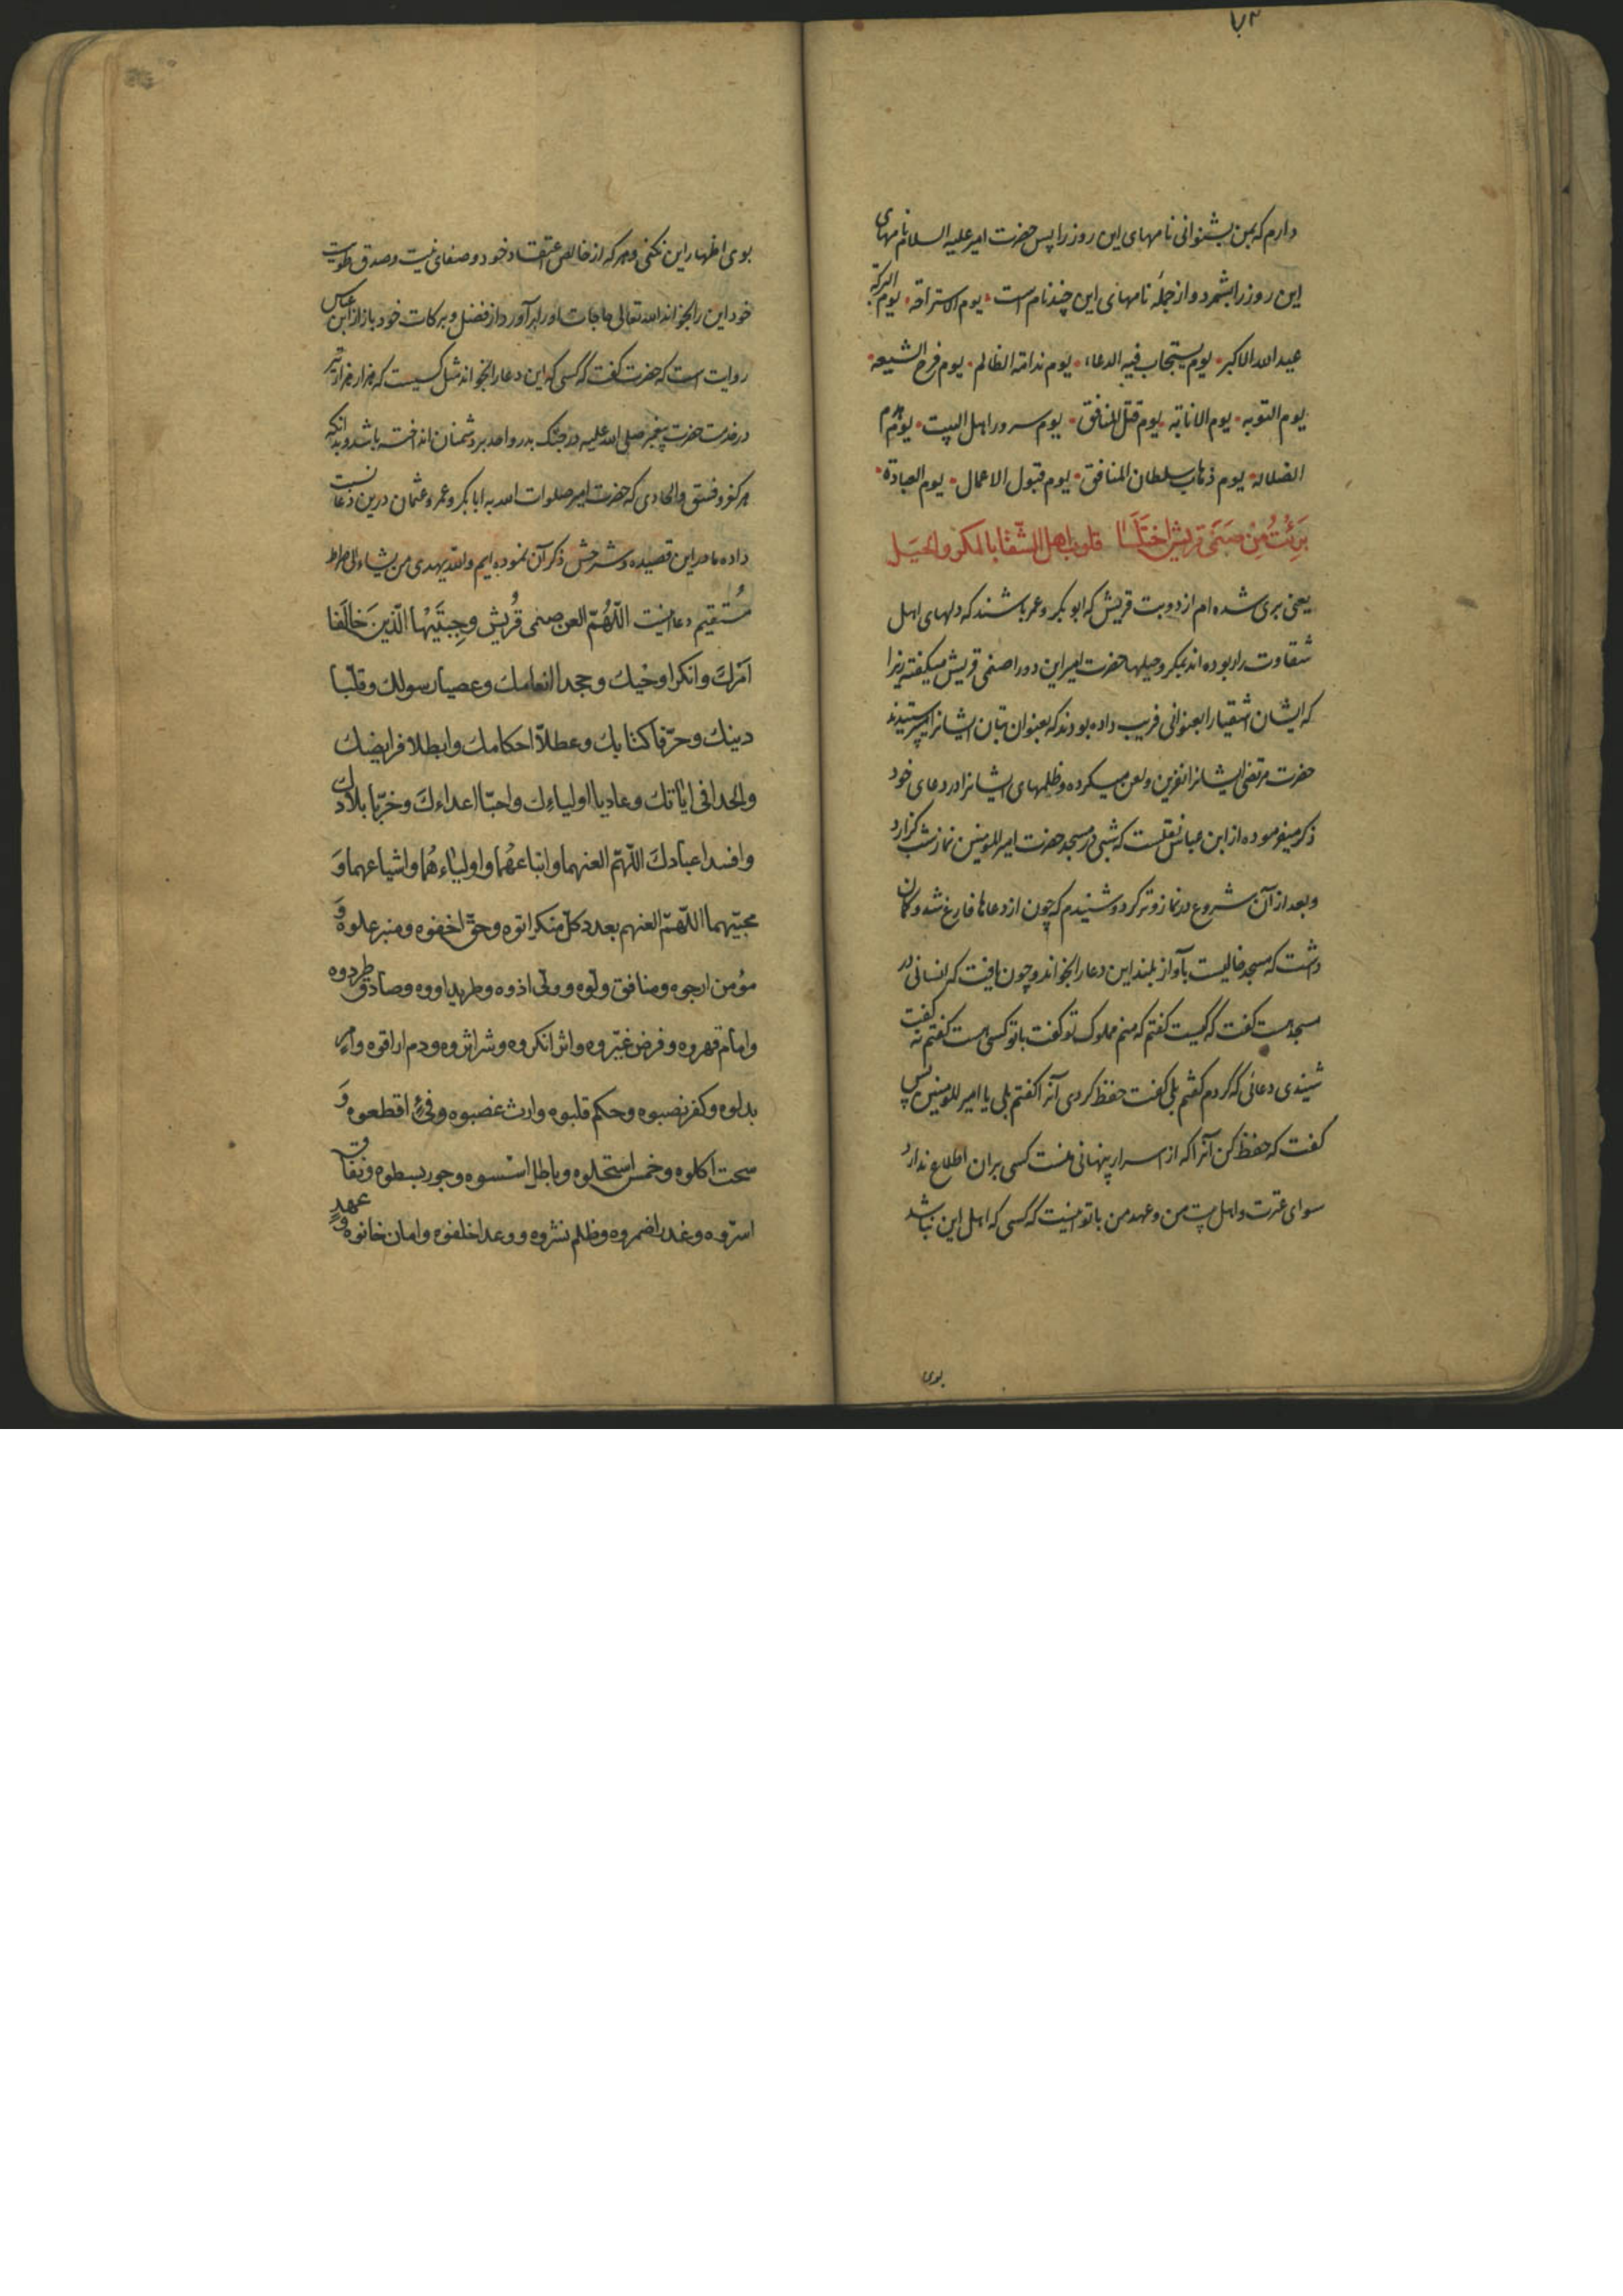 ۷۲
دارم که بمن بشنوانی نامهای این روز را پس حضرت امیر علیه السلام نامهای
این روز را بشمرد و از جملهٔ نامهای این چند نام است یوم الاستراحة یوم البرکة
عید الله الاکبر یوم یستجاب فیه الدعاء یوم ندامة الظالم یوم فرح الشیعه
یوم التوبه یوم الانابة یوم قتل المنافق یوم سرور اهل البیت یوم هدم
الضلاله یوم ذهاب سلطان المنافق یوم قبول الاعمال یوم العبادة
بَرِئْتُ مِنْ صَنَمَیْ قریش اختلسا قلوب اهل الشّقا بالمکر والحیَل
یعنی بری شده ام از دو بت قریش که ابو بکر و عمر باشند که دلهای اهل
شقاوت را ربوده اند بمکر و حیلها حضرت امیر این دو را صنمی قریش میگفته زیرا
که ایشان اشقیا را بعنوانی فریب داده بودند که بعنوان بتان ایشانرا میپرستیدند
حضرت مرتضی ایشانرا نفرین و لعن میکرده و ظلمهای ایشانرا در دعای خود
ذکر میفرموده از ابن عباس نقلست که شبی در مسجد حضرت امیر المومنین نماز شب گزارد
و بعد از آن شروع در نماز وتر کرد و شنیدم که چون از دعاها فارغ شد و گمان
داشت که مسجد خالیست بآواز بلند این دعا را بخواند و چون یافت که انسانی در
مسجد هست گفت که کیست گفتم که منم مملوک تو گفت با تو کسی هست گفتم نه گفت
شنیدی دعائی که کردم گفتم بلی گفت حفظ کردی آنرا گفتم بلی یا امیر المومنین پس
گفت که حفظ کن آنرا که از اسرار پنهانی منست کسی بران اطلاع ندارد
سوای عترت و اهل بیت من و عهد من با تو اینست که کسی که اهل این نباشد
بوی
بوی اظهار این نکنی و هر که از خالص اعتقاد خود و صفای نیت و صدق طویت
خود این را بخواند الله تعالی حاجات او را برآورد از فضل و برکات خود باز از ابن عباس
روایت است که حضرت گفت که کسی که این دعا را بخواند مثل کسیست که هزار هزار تیر
در خدمت حضرت پیغمبر صلی الله علیه در جنگ بدر و احد بر دشمنان انداخته باشد و بدانکه
هر کفر و فسق و الحادی که حضرت امیر صلوات الله به ابا بکر و عمر و عثمان درین دعا نسبت
داده ما در این قصیده و شرحش ذکر آن نموده ایم والله یهدی من یشاء الی صراط
مُستقیم دعا اینست اللّهُمّ العن صنمی قُریش وجِبتَیْها الّذینَ خَالَفَا
اَمْرَكَ وانکرا وحْیك وجحدا انعامك وعصیا رسولك وقلّبا
دینك وحرّفا کتابك وعطلّا احکامك وابطلا فرایضك
والحدا فی ایاتك وعادیا اولیاءك واحبّا اعداءكَ وخرّبا بلادك
وافسدا عبادكَ اللّهمّ العنهما واتباعهُما واولیاءهُما واشیاعهما وَ
محبّیهما اللّهمّ العنهم بعدد کلّ منکر اتوه وحقّ اخفوه ومنبر علوه وَ
مؤمن ارجوه ومنافق ولّوه وولّی اذوه وطرید اووه وصادق طردوه
وامام قهروه وفرض غیّروه واثر انکروه وشر اثروه ودم اراقوه وامر
بدلوه وکفر نصبوه وحکم قلبوه وارث غصبوه وفیءٍ اقطعوه وَ
سحت اکلوه وخمس استحلوه وباطل اسّسوه وجور بسطوه ونفاق
اسرّوه وغدر اضمروه وظلم نشروه ووعد اخلفوه وامان خانوه وعهدٍ